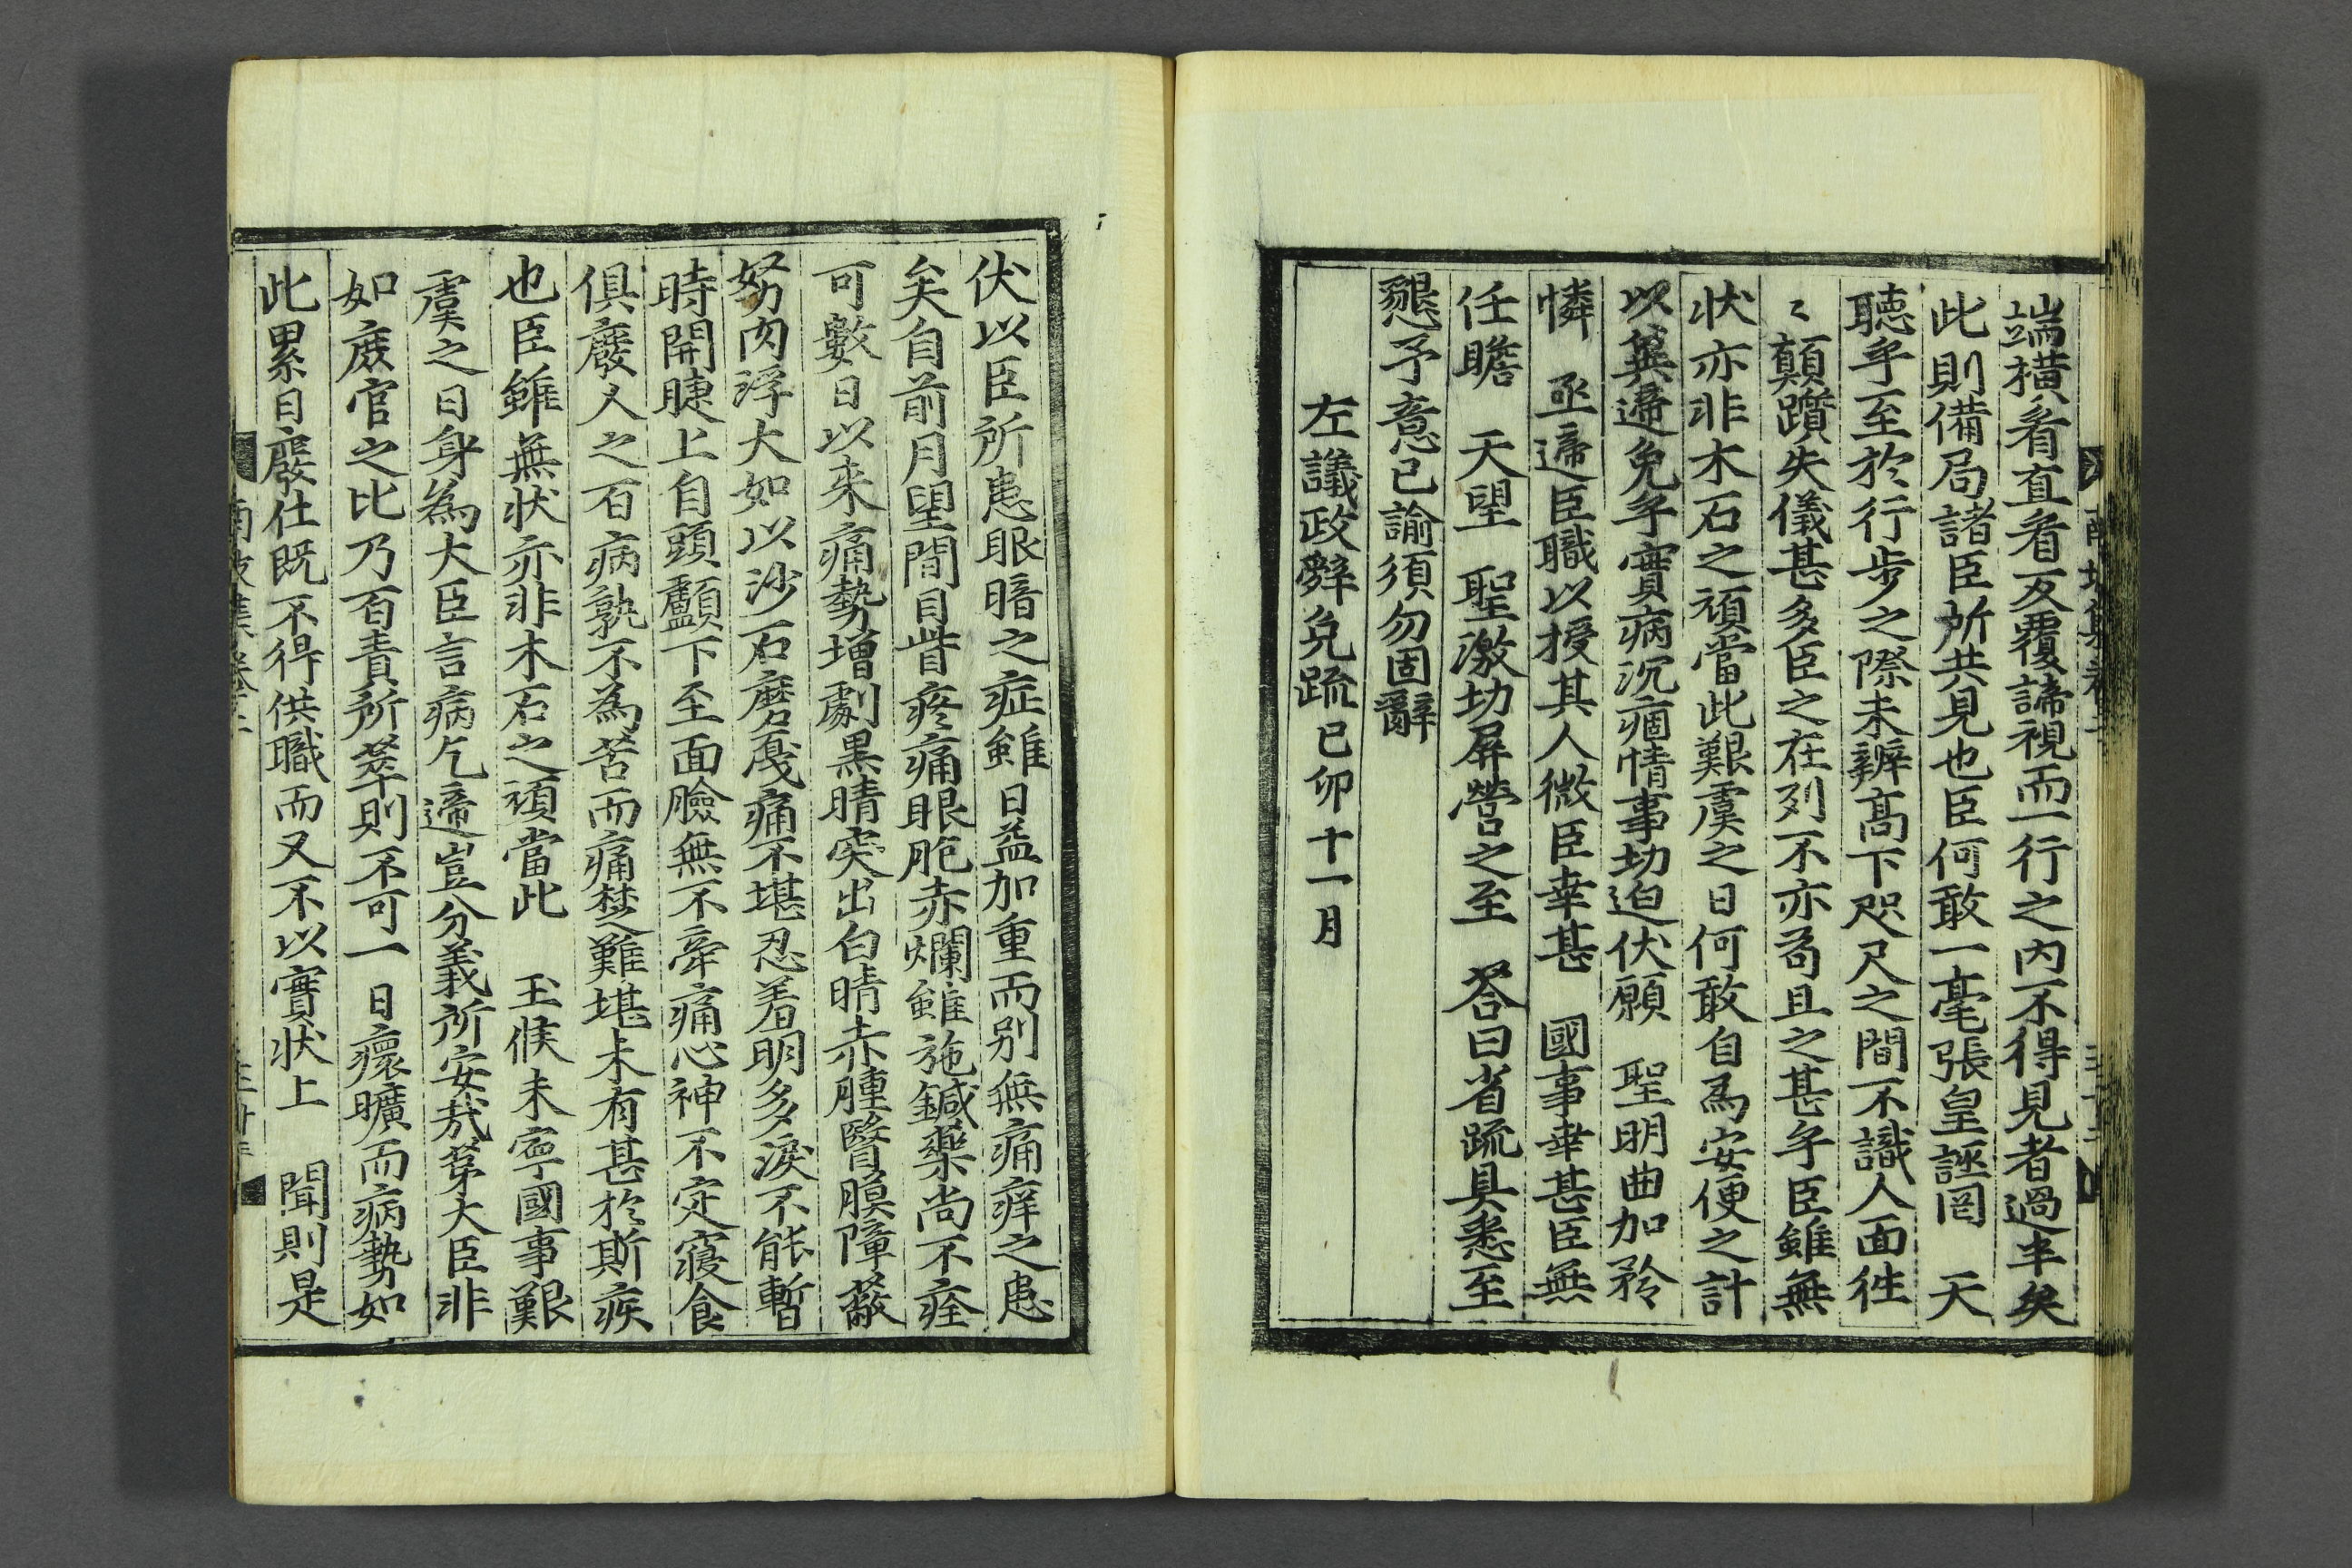 端橫看直看反覆諦視而一行之內不得見者過半矣
此則備局諸臣所共見也臣何敢一毫張皇誣罔　天
聽乎至於行步之際未辨高下咫尺之間不識人面徃
〻顛躓失儀甚多臣之在列不亦苟且之甚乎臣雖無
狀亦非木石之頑當此艱虞之日何敢自爲安便之計
以冀遞免乎實病沉痼情事切迫伏願　聖明曲加矜
憐　亟遞臣職以授其人微臣幸甚　國事幸甚臣無
任瞻　天望　聖激切屛營之至　答曰省疏具悉至
懇予意已諭須勿固辭
左議政辭免疏 己卯十一月
伏以臣所患眼暗之症雖日益加重而別無痛痒之患
矣自前月望間目眥疼痛眼胞赤爛雖施鍼藥尚不痊
可數日以来痛勢增劇黑睛突出白睛赤腫瞖膜障蔽
努肉浮大如以沙石磨戛痛不堪忍羞明多淚不能暫
時開睫上自頭顱下至面臉無不牽痛心神不定寢食
俱廢人之百病孰不為苦而痛楚難堪未有甚於斯疾
也臣雖無狀亦非木石之頑當此　玉候未寧國事艱
虞之日身為大臣言病乞遞豈分義所安哉第大臣非
如庶官之比乃百責所萃則不可一日癏曠而病勢如
此累日廢仕旣不得供職而又不以實狀上　聞則是